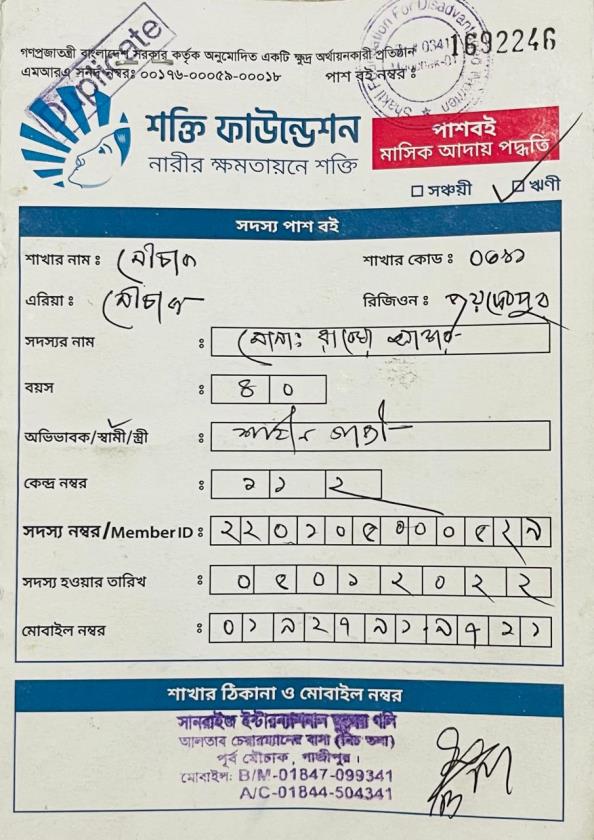 Duplicate
গণপ্রজাতন্ত্রী বাংলাদেশ সরকার কর্তৃক অনুমোদিত একটি ক্ষুদ্র অর্থায়নকারী প্রতিষ্ঠান
এমআরএ সনদ নম্বরঃ ০০১৭৬-০০০৫৯-০০০১৮ পাশ বই নম্বর ঃ 1692246
0341
শক্তি ফাউন্ডেশন
নারীর ক্ষমতায়নে শক্তি
পাশবই
মাসিক আদায় পদ্ধতি
সঞ্চয়ী ঋণী
সদস্য পাশ বই
শাখার নাম ঃ মৌচাক শাখার কোড ঃ ০৩৪১
এরিয়া ঃ মৌচাক রিজিওন ঃ জয়দেবপুর
সদস্যর নাম ঃ মোসাঃ
বয়স ঃ ৪০
অভিভাবক/স্বামী/স্ত্রী ঃ
কেন্দ্র নম্বর ঃ ১১২
সদস্য নম্বর/Member ID ঃ ২২০১০৫০০০৫২৯
সদস্য হওয়ার তারিখ ঃ ০৫০১২০২২
মোবাইল নম্বর ঃ
শাখার ঠিকানা ও মোবাইল নম্বর
সানরাইজ ইন্টারন্যাশনাল স্কুলের গলি
আলতাব চেয়ারম্যানের বাসা (নিচ তলা)
পূর্ব মৌচাক, গাজীপুর।
মোবাইল: B/M-01847-099341
A/C-01844-504341